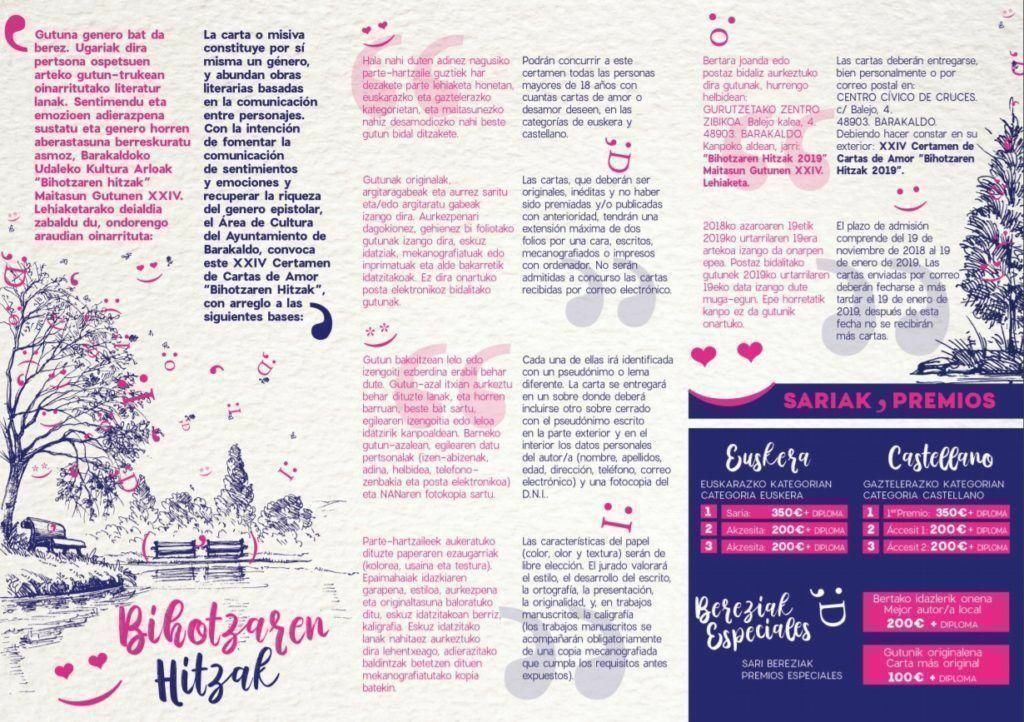 Gutuna genero bat da
berez. Ugariak dira
pertsona ospetsuen
arteko gutun-trukean
oinarritutako literatur
lanak. Sentimendu eta
emozioen adierazpena
sustatu eta genero horren
aberastasuna berreskuratu
asmoz, Barakaldoko
Udaleko Kultura Arloak
"Bihotzaren hitzak"
Maitasun Gutunen XXIV.
Lehiaketarako deialdia
zabaldu du, ondorengo
araudian oinarrituta:
La carta o misiva
constituye por sí
misma un género,
y abundan obras
literarias basadas
en la comunicación
entre personajes.
Con la intención
de fomentar la
comunicación
de sentimientos
y emociones y
recuperar la riqueza
del genero epistolar,
el Área de Cultura
del Ayuntamiento de
Barakaldo, convoca
este XXIV Certamen
de Cartas de Amor
"Bihotzaren Hitzak",
con arreglo a las
siguientes bases:
Bihotzaren
Hitzak
Hala nahi duten adinez nagusiko
parte-hartzaile guztiek har
dezakete parte lehiaketa honetan,
euskarazko eta gaztelerazko
kategorietan, eta maitasunezko
nahiz desamodiozko nahi beste
gutun bidal ditzakete.
Podrán concurrir a este
certamen todas las personas
mayores de 18 años con
cuantas cartas de amor o
desamor deseen, en las
categorías de euskera y
castellano.
Gutunak originalak,
argitaragabeak eta aurrez saritu
eta/edo argitaratu gabeak
izango dira. Aurkezpenari
dagokionez, gehienez bi foliotako
gutunak izango dira, eskuz
idatziak, mekanografiatuak edo
inprimatuak eta alde bakarretik
idatzitakoak. Ez dira onartuko
posta elektronikoz bidalitako
gutunak.
Las cartas, que deberán ser
originales, inéditas y no haber
sido premiadas y/o publicadas
con anterioridad, tendrán una
extensión máxima de dos
folios por una cara, escritos,
mecanografiados o impresos
con ordenador. No serán
admitidas a concurso las cartas
recibidas por correo electrónico.
Gutun bakoitzean lelo edo
izengoiti ezberdina erabili behar
dute. Gutun-azal itxian aurkeztu
behar dituzte lanak, eta horren
barruan, beste bat sartu,
egilearen izengoitia edo leloa
idatzirik kanpoaldean. Barneko
gutun-azalean, egilearen datu
pertsonalak (izen-abizenak,
adina, helbidea, telefono-
zenbakia eta posta elektronikoa)
eta NANaren fotokopia sartu.
Cada una de ellas irá identificada
con un pseudónimo o lema
diferente. La carta se entregará
en un sobre donde deberá
incluirse otro sobre cerrado
con el pseudónimo escrito
en la parte exterior y en el
interior los datos personales
del autor/a (nombre, apellidos,
edad, dirección, teléfono, correo
electrónico) y una fotocopia del
D.N.I..
Parte-hartzaileek aukeratuko
dituzte paperaren ezaugarriak
(kolorea, usaina eta testura).
Epaimahaiak idazkiaren
garapena, estiloa, aurkezpena
eta originaltasuna baloratuko
ditu, eskuz idatzitakoan berriz,
kaligrafia. Eskuz idatzitako
lanak nahitaez aurkeztuko
dira lehentxeago, adierazitako
baldintzak betetzen dituen
mekanografiatutako kopia
batekin.
Las características del papel
(color, olor y textura) serán de
libre elección. El jurado valorará
el estilo, el desarrollo del escrito,
la ortografía, la presentación,
la originalidad, y, en trabajos
manuscritos, la caligrafía
(los trabajos manuscritos se
acompañarán obligatoriamente
de una copia mecanografiada
que cumpla los requisitos antes
expuestos).
Bertara joanda edo
postaz bidaliz aurkeztuko
dira gutunak, hurrengo
helbidean:
GURUTZETAKO ZENTRO
ZIBIKOA. Balejo kalea, 4.
48903. BARAKALDO.
Kanpoko aldean, jarri:
"Bihotzaren Hitzak 2019"
Maitasun Gutunen XXIV.
Lehiaketa.
Las cartas deberán entregarse,
bien personalmente o por
correo postal en:
CENTRO CÍVICO DE CRUCES.
c/ Balejo, 4.
48903. BARAKALDO.
Debiendo hacer constar en su
exterior: XXIV Certamen de
Cartas de Amor "Bihotzaren
Hitzak 2019".
2018ko azaroaren 19etik
2019ko urtarrilaren 19era
artekoa izango da onarpen
epea. Postaz bidalitako
gutunek 2019ko urtarrilaren
19eko data izango dute
muga-egun. Epe horretatik
kanpo ez da gutunik
onartuko.
El plazo de admisión
comprende del 19 de
noviembre de 2018 al 19
de enero de 2019. Las
cartas enviadas por correo
deberán fecharse a más
tardar el 19 de enero de
2019, después de esta
fecha no se recibirán
más cartas.
SARIAK , PREMIOS
Euskera
EUSKARAZKO KATEGORIAN
CATEGORIA EUSKERA
1 Saria: 350€ + DIPLOMA
2 Akzesita: 200€ + DIPLOMA
3 Akzesita: 200€ + DIPLOMA
Castellano
GAZTELERAZKO KATEGORIAN
CATEGORIA CASTELLANO
1 1er Premio: 350€ + DIPLOMA
2 Áccesit 1: 200€ + DIPLOMA
3 Áccesit 2: 200€ + DIPLOMA
Bereziak
Especiales
SARI BEREZIAK
PREMIOS ESPECIALES
Bertako idazlerik onena
Mejor autor/a local
200€ + DIPLOMA
Gutunik originalena
Carta más original
100€ + DIPLOMA